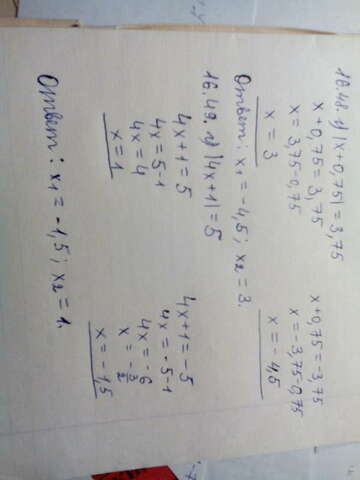 16.48. 1) |x+0,75|=3,75
x+0,75=3,75
x=3,75-0,75
x=3
x+0,75=-3,75
x=-3,75-0,75
x=-4,5
Ответ: x₁=-4,5; x₂=3.
16.49. 1) |4x+1|=5
4x+1=5
4x=5-1
4x=4
x=1
4x+1=-5
4x=-5-1
4x=-6
x=-3/2
x=-1,5
Ответ: x₁=-1,5; x₂=1.